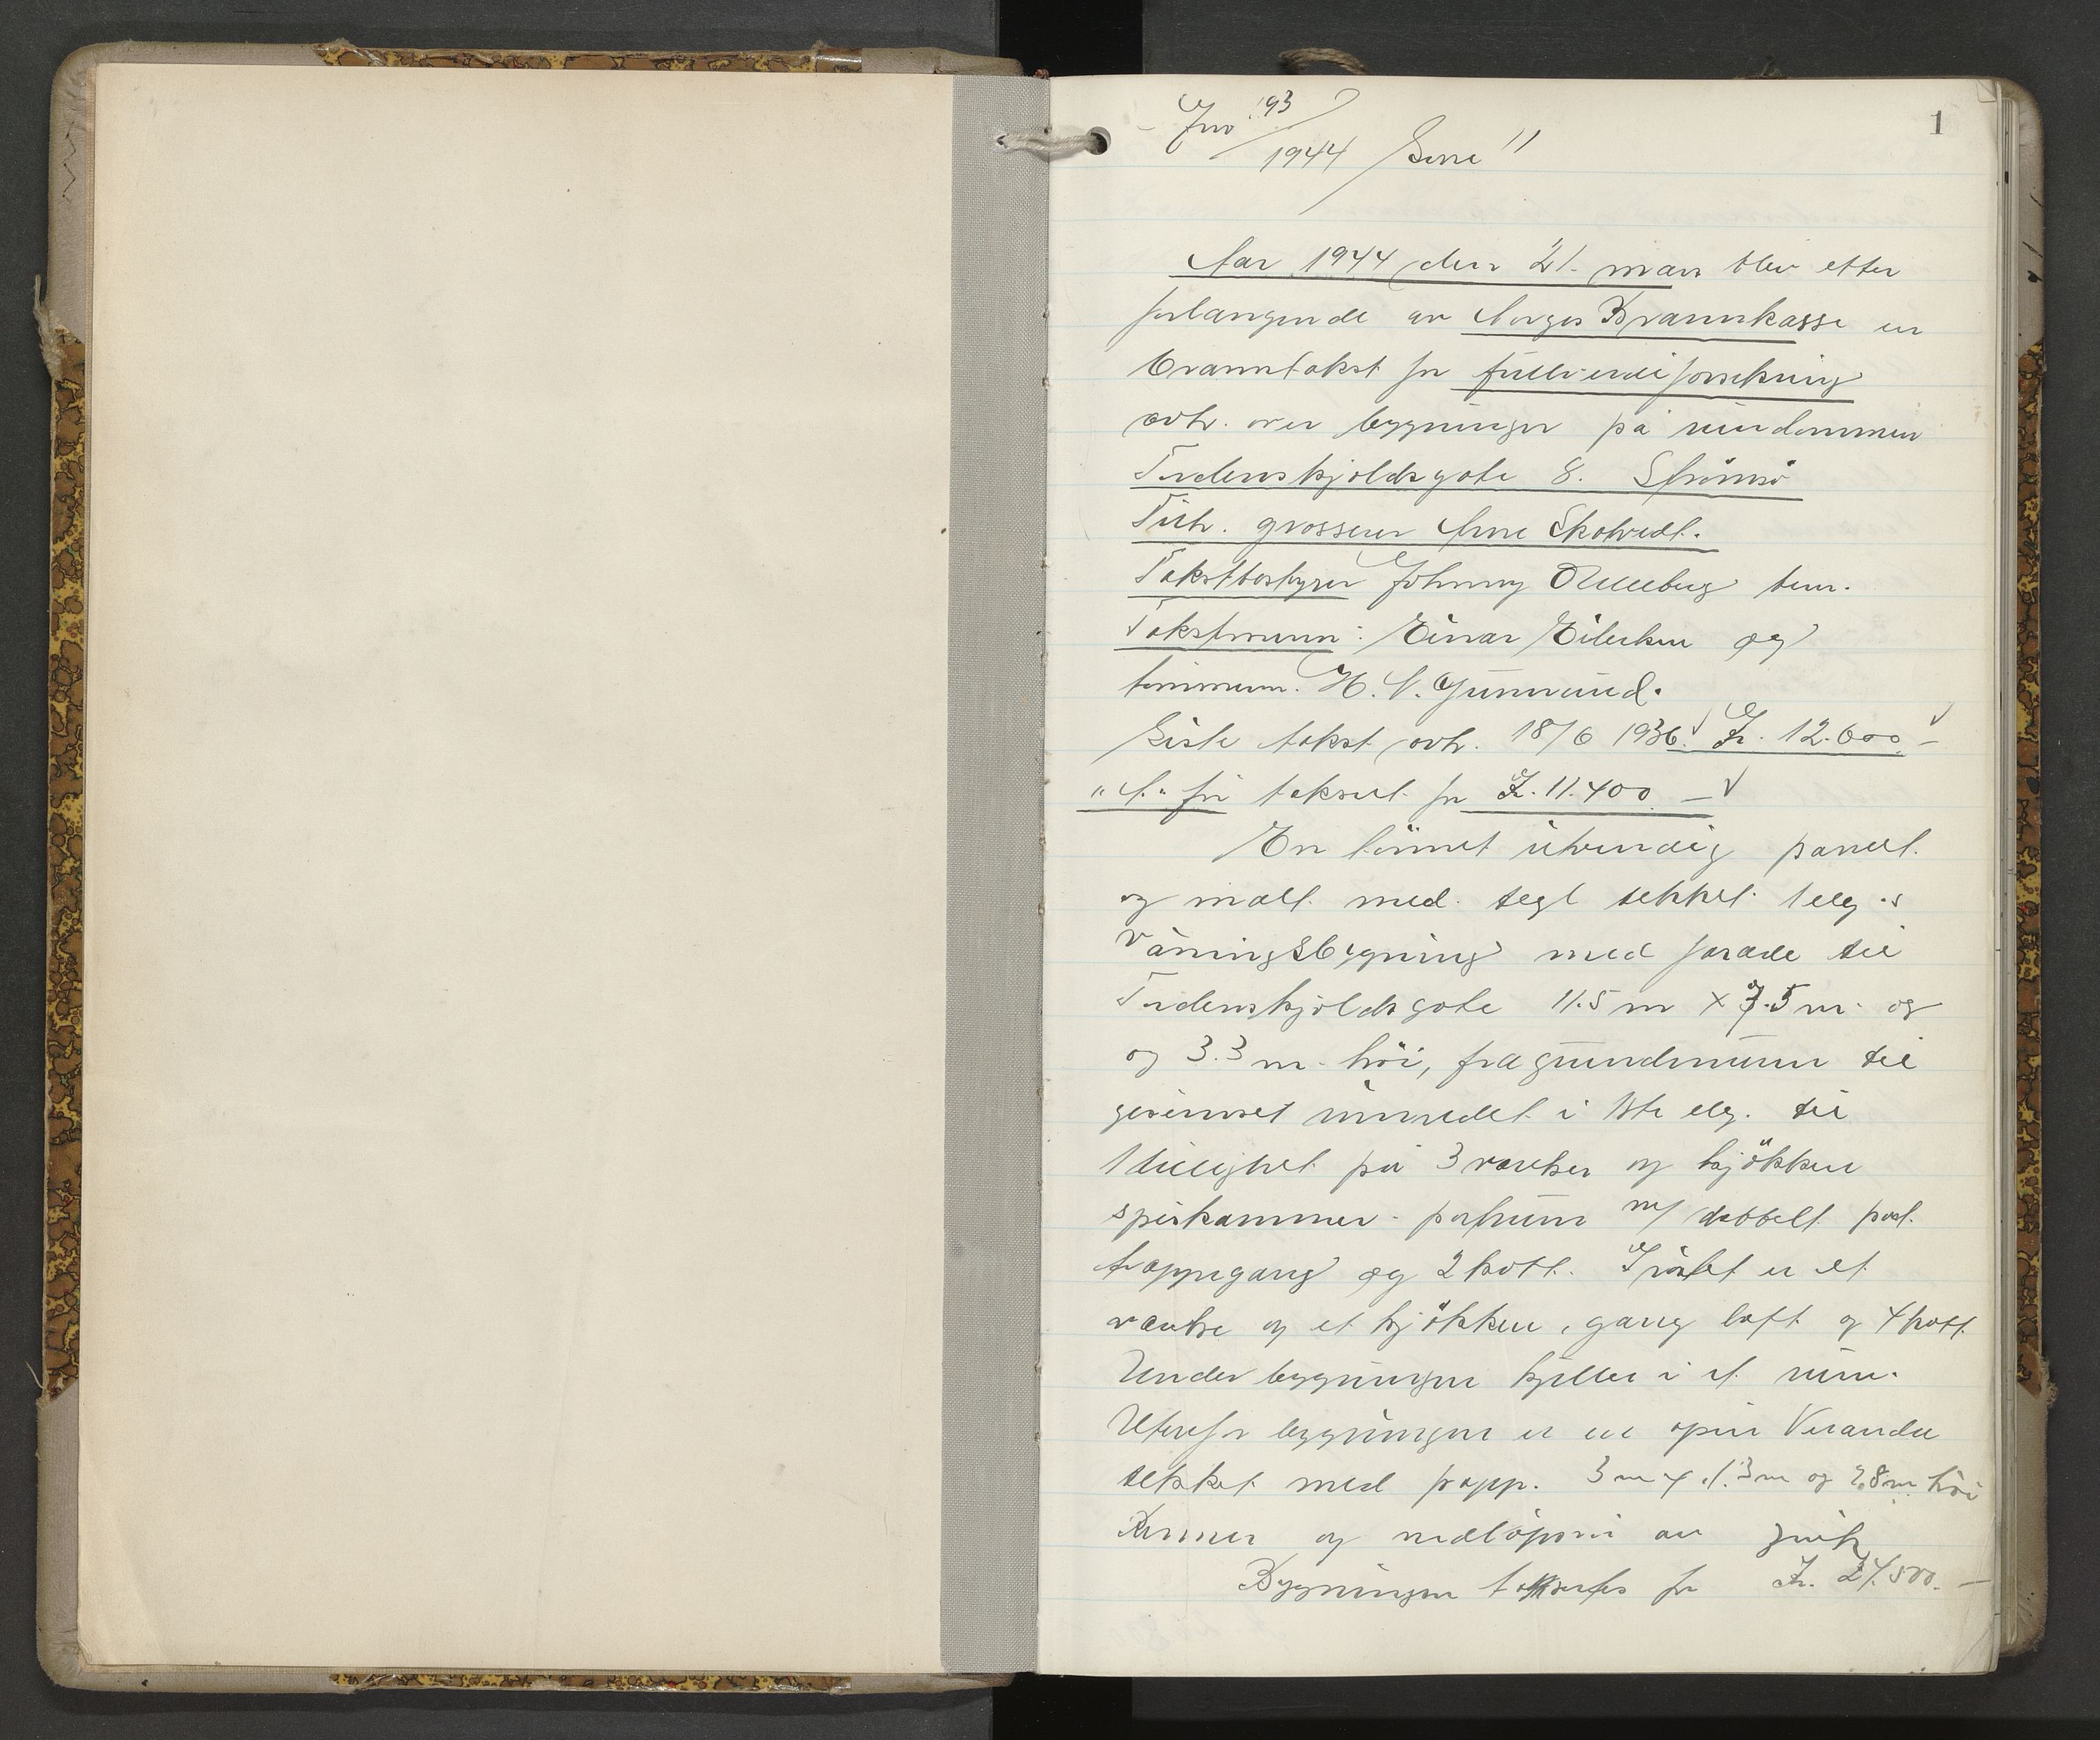 1
Jnr 193
1944 Sone 11
Aar 1944 den 21. mars blev efter
forlangende av Norges Brannkasse en
branntakst for fullverdiforsikring
avh. over bygninger på eiendommen
Tordenskjoldsgate 8. Strömsö
Tilh. grosserer Arne Skotvedt.
Takstbestyrer Johnny Ulleberg tem.
Takstmenn: Einar Eilertsen og
tömmerm. H. N. Gunnerud.
Siste takst avh. 18/6 1936. Kr. 12.600 –
"A." för taksert for Kr. 11.400 –
En tömret utvendig panelt
og malt med tegl tekket 1 etg.s
våningsbygning med fasade til
Tordenskjoldsgate 11.5 m x 7.5 m. og
og 3.3 m. höi, fra grundmuren til
gesimset innredet i 1ste etg. til
1 leilighet på 3 værelser og kjökken
spiskammer - forrum m/ dobbelt
trappegang og 2 kott. I loftet er et
værelse og et kjökken, gang loft og 4 kott.
Under bygningen kjeller i et rum.
Utenfor bygningen er en open Veranda
tekket med papp. 3 m x 1.3 m og 2,8 m. höi
Renner og nedlöpsrör av zink
Bygningen takseres for Kr. 24.500. –